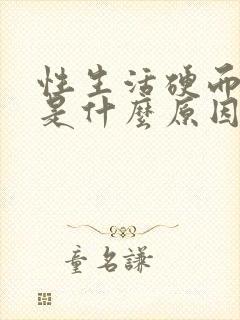 性生活硬而
是什麼原因
童名謙